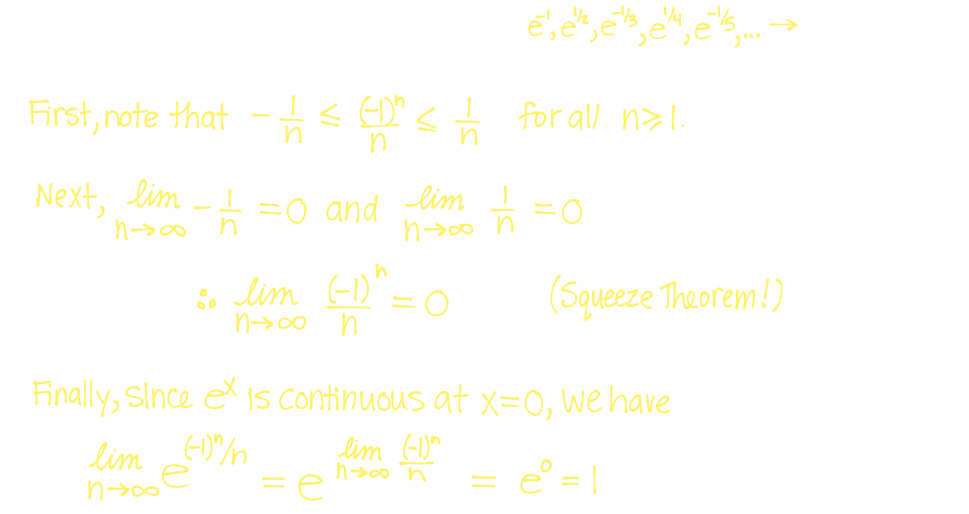 e⁻¹, e^{1/2}, e^{-1/3}, e^{1/4}, e^{-1/5}, ... →
First, note that -1/n ≤ (-1)ⁿ/n ≤ 1/n for all n ≥ 1.
Next, lim_{n→∞} -1/n = 0 and lim_{n→∞} 1/n = 0
∴ lim_{n→∞} (-1)ⁿ/n = 0 (Squeeze Theorem!)
Finally, since eˣ is continuous at x=0, we have
lim_{n→∞} e^{(-1)ⁿ/n} = e^{lim_{n→∞} (-1)ⁿ/n} = e⁰ = 1